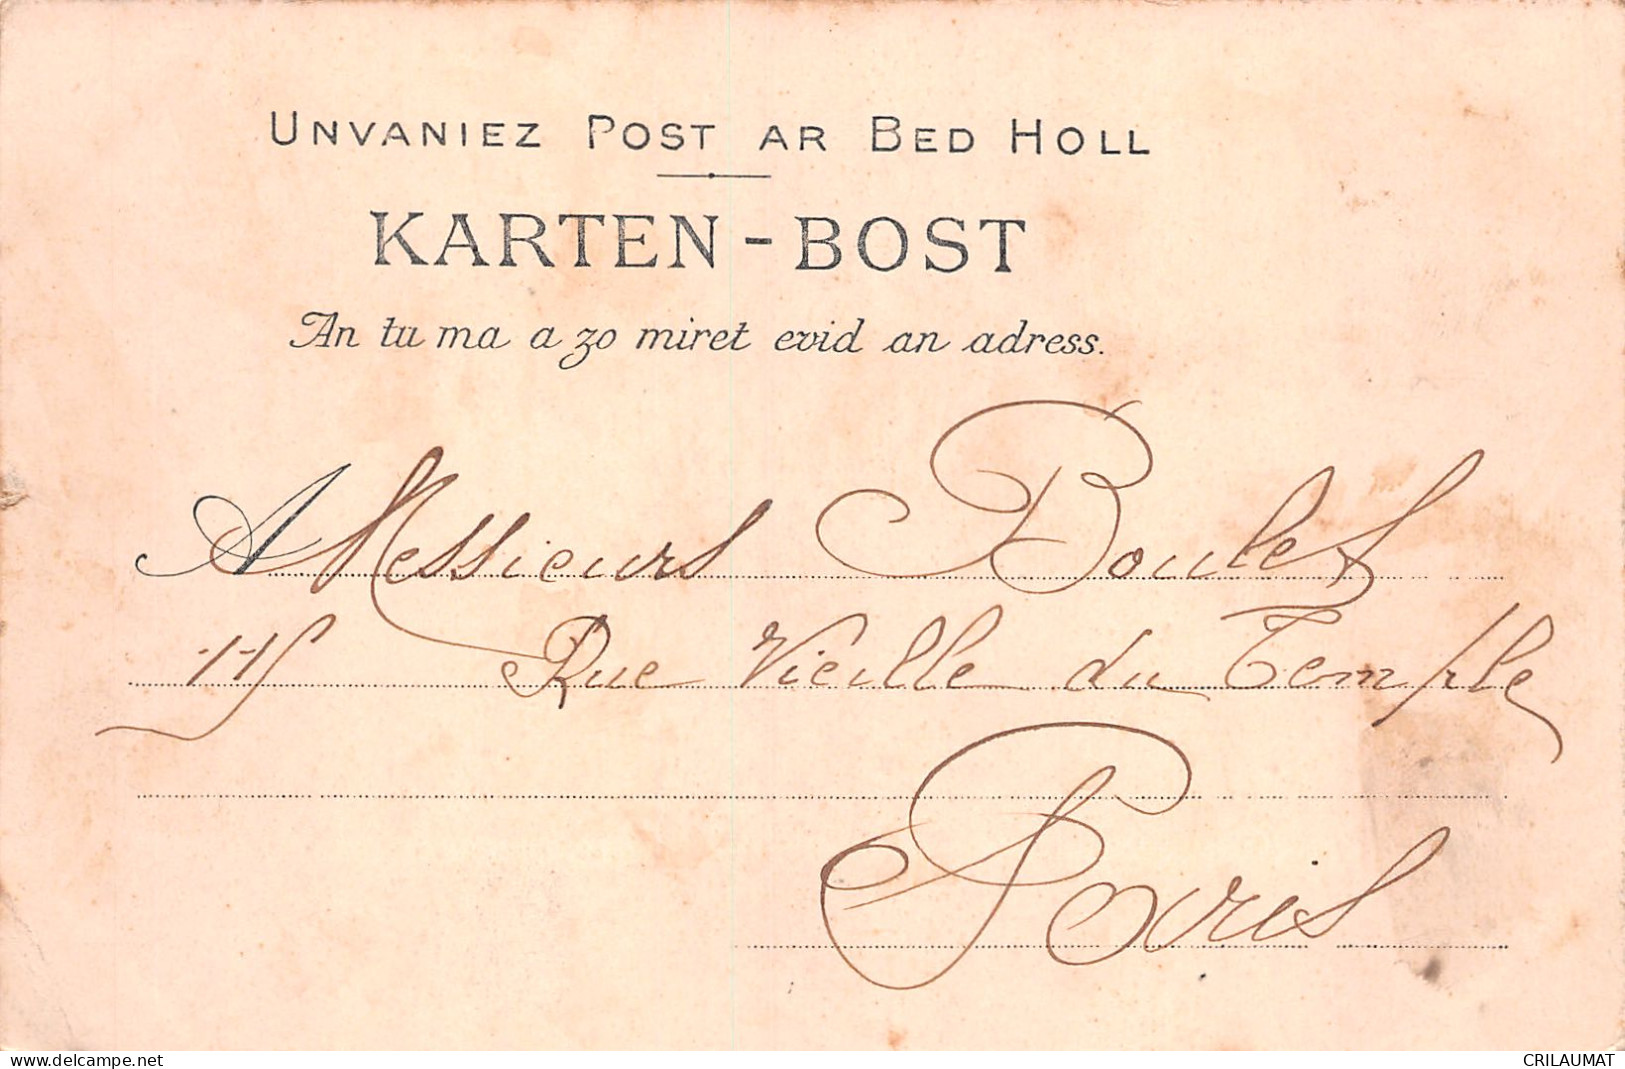 UNVANIEZ POST AR BED HOLL
KARTEN-BOST
An tu ma a zo miret evid an adress.
A Messieurs Boulet
115 Rue Vieille du Temple
Paris
delcampe.net
CRILAUMAT